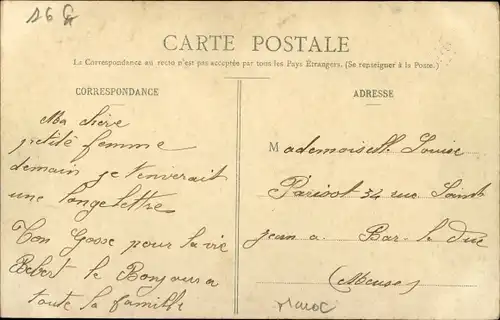 16
CARTE POSTALE
La Correspondance au recto n'est pas acceptée par tous les Pays Étrangers. (Se renseigner à la Poste.)
CORRESPONDANCE
Ma chère
petite femme
demain je t'enverait
une longe lettre
Ton Gosse pour la vie
Bebert le Bonjour a
toute la famille
ADRESSE
Mademoisell. Louise
Parisot 34 rue Saint
jean a Bar-le Duc
(Meuse)
Maroc